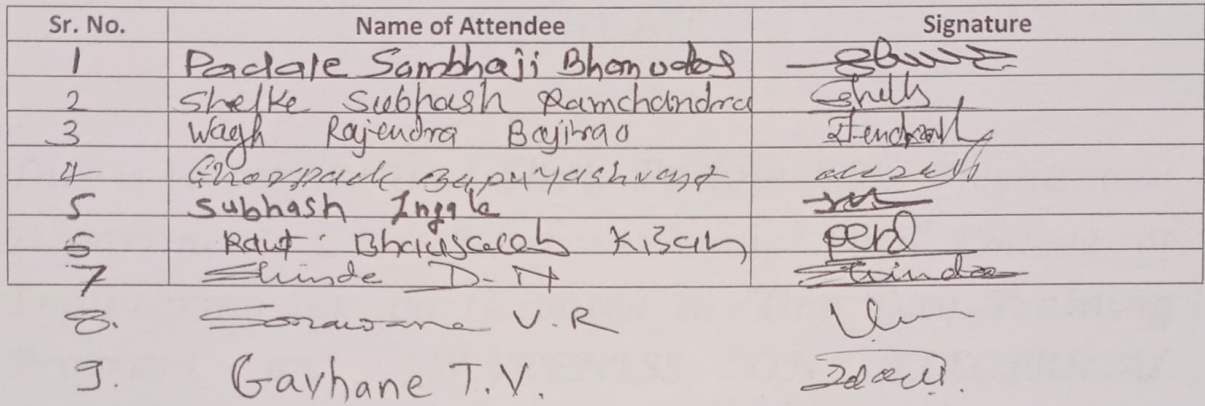 Sr. No. Name of Attendee Signature
1 Padale Sambhaji Bhanudas
2 Shelke Subhash Ramchandra Shelk
3 Wagh Rajendra Bajirao
4 Ghorpade Bapu Yashvant
5 Subhash Ingale
6 Raut Bhausaheb Kisan
7 Shinde D-N Shinde
8. Sonawane V.R
9. Gavhane T.V.